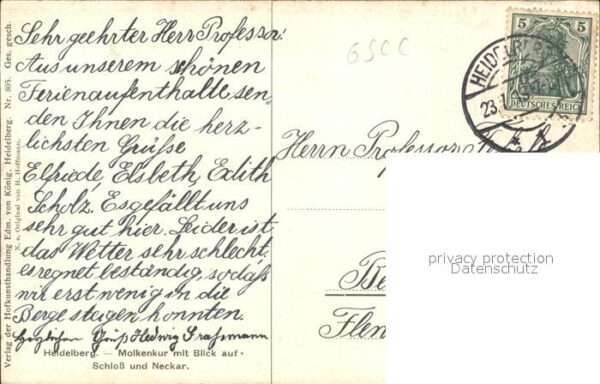 Sehr geehrter Herr Professor!
Aus unserem schönen
Ferienaufenthalte sen-
den Ihnen die herz-
lichsten Grüße
Elfriede, Elsbeth, Edith
Scholz. Es gefällt uns
sehr gut hier. Leider ist
das Wetter sehr schlecht,
es regnet beständig, sodaß
wir erst wenig in die
Berge steigen konnten.
Herzlichen Gruß Hedwig
Heidelberg. — Molkenkur mit Blick auf
Schloß und Neckar.
Verlag der Hofkunsthandlung Edm. von König, Heidelberg. Nr. 805. Ges. gesch.
N. e. Original von H. Hoffmann.
5 5
DEUTSCHES REICH
HEIDELBERG
23.
Herrn Professor
Be
Flen
privacy protection
Datenschutz